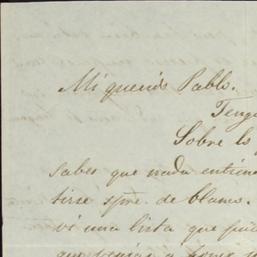 Mi querido Pablo.
Teng
Sobre lo
saber que nada entien
tire spre. de blanco.
vi una lista que
que